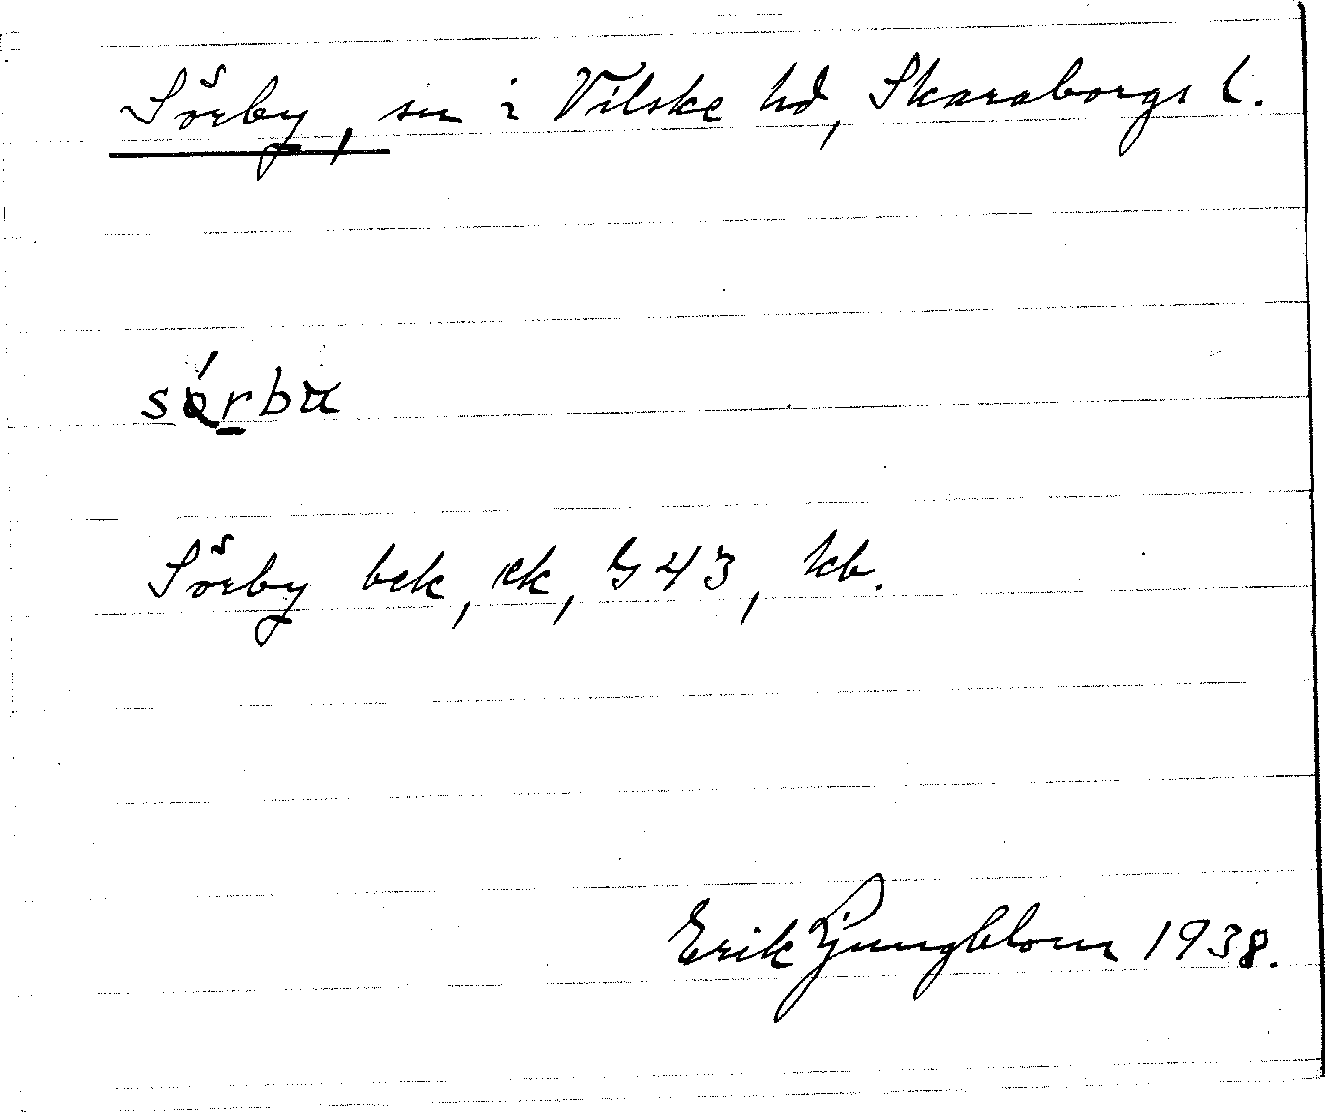 Sörby, sn i Vilske hd, Skaraborgs l.
Sörby bek, ek, G 43, kb.
Erik Ljungblom 1938.